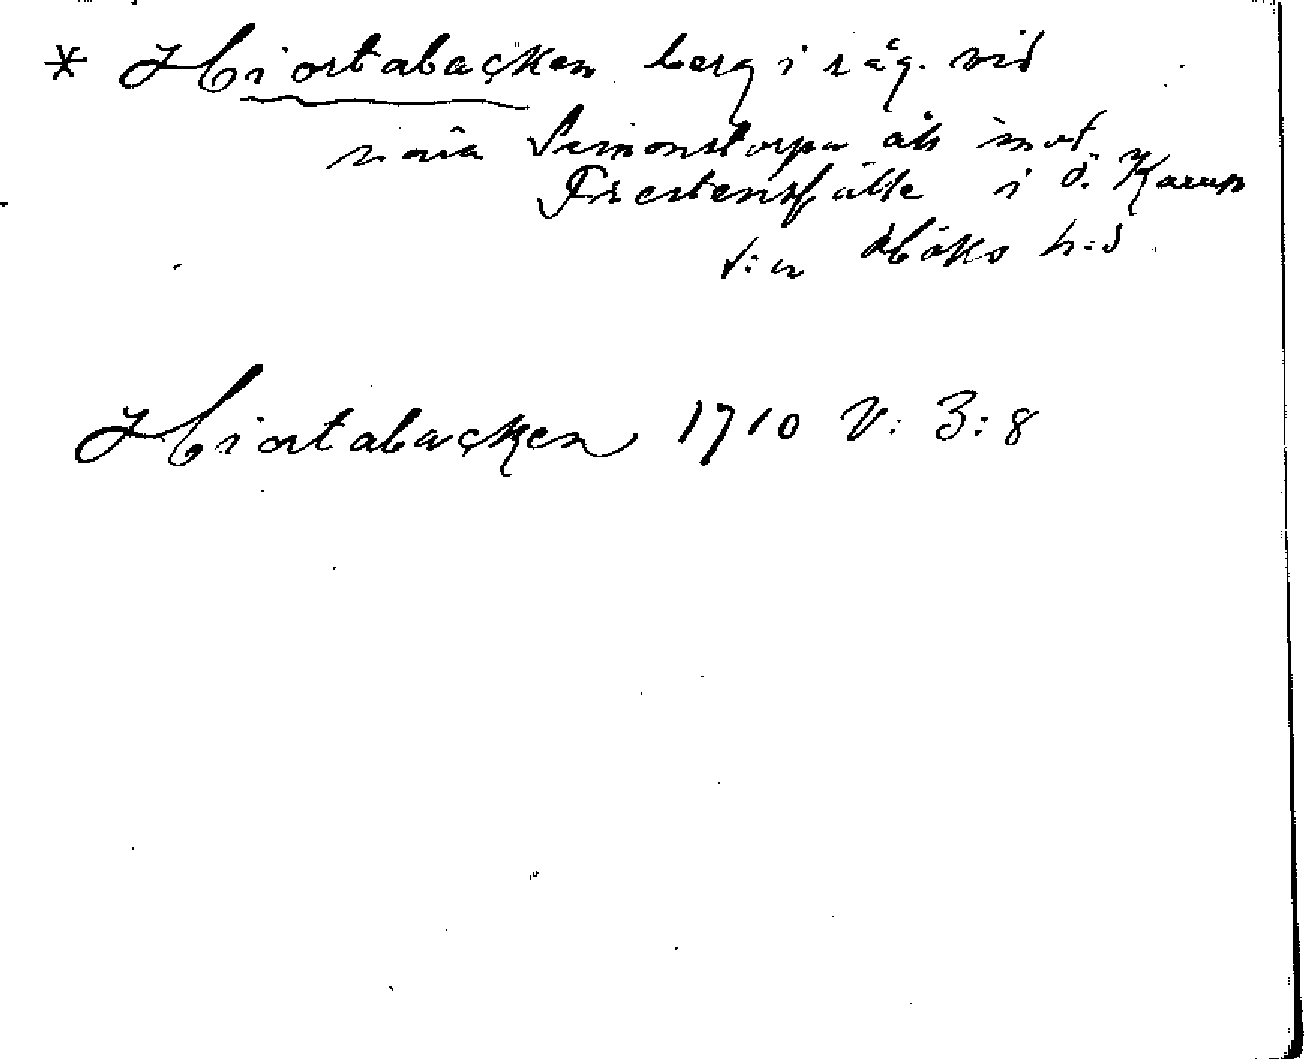 * Hiortabacken berg i råg. vid
norra Simonstorps äls mot
Presteruslätt i Ö. Karup
s:n Höks h:d
Hiortabacken 1710 V: 3:8